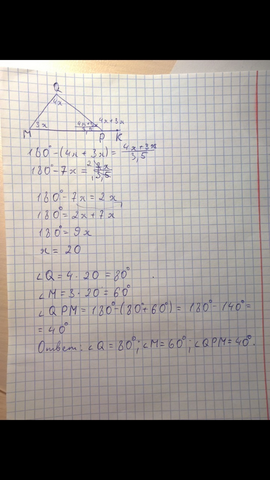 Q
4x
M 3x (4x+3x)/3,5 4x+3x
P K
180° - (4x + 3x) = (4x+3x)/3,5
180 - 7x = 7x/3,5
180° - 7x = 2x
180° = 2x + 7x
180° = 9x
x = 20
∠Q = 4 · 20 = 80°
∠M = 3 · 20 = 60°
∠QPM = 180° - (80° + 60°) = 180° - 140° =
= 40°
Ответ: ∠Q = 80°; ∠M = 60°; ∠QPM = 40°.